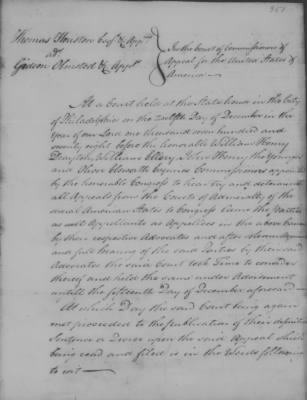 Thomas Houston Esqr & Appees
ads
Gideon Olmsted & Appts
In the Court of Commissioners of
Appeal for the United States of
America
At a Court held at the State house in the City
of Philadelphia on the twelfth Day of December in the
Year of our Lord one thousand seven hundred and
seventy eight before the honorable William Henry
Drayton, William Ellery, John Henry the Younger
and Oliver Elsworth Esquires Commissioners appointed
by the honorable Congress to hear try and determine
all Appeals from the Courts of Admiralty of the
several American States to Congress Came the Parties
as well Appellants as Appellees in the above Cause
by their respective Advocates and after
and full hearing of the said Parties by their said
Advocates the said Court took Time to consider
thereof and held the same under Advisement
until the fifteenth Day of December aforesaid
At which Day the said Court being again
met proceeded to the publication of their definitive
Sentence or Decree upon the said Appeal which
being read and filed is in the Words following
to wit